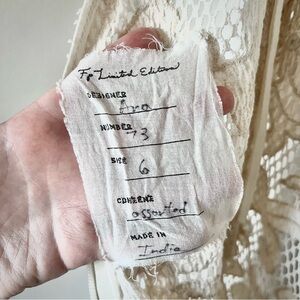 Fp Limited Edition
DESIGNER
NUMBER 73
SIZE 6
CONTENT
assorted
MADE IN
India